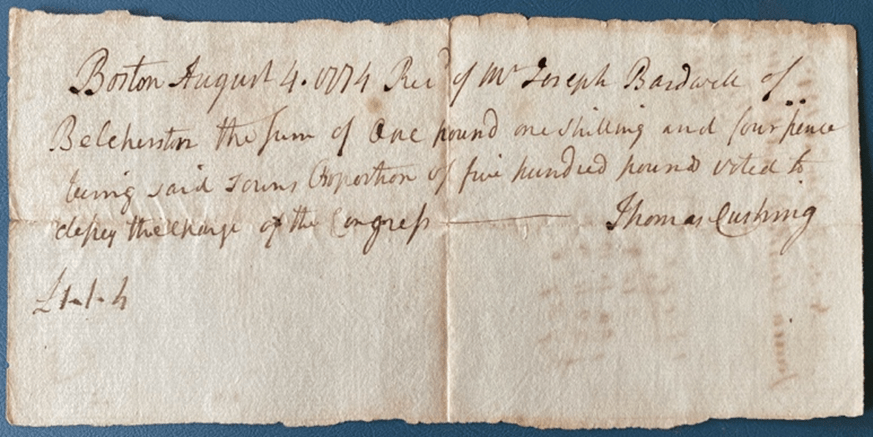 Boston August 4. 1774 Recd of Mr Joseph Bardwell of
Belcherston the sum of One pound one shilling and four pence
being said Towns Proportion of five hundred pound voted to
defrey the charge of the Congress Thomas Cushing
£1-1-4